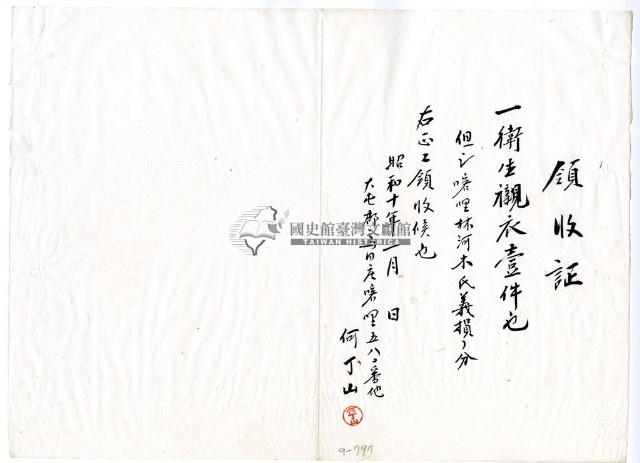 領收証
一衛生襯衣壹件也
但シ喀哩林河木氏義損ノ分
右正ニ領收候也
昭和十年 月 日
大屯郡烏日庄喀哩五八 番地
何丁山
國史館臺灣文獻館
TAIWAN HISTORICA
9-797